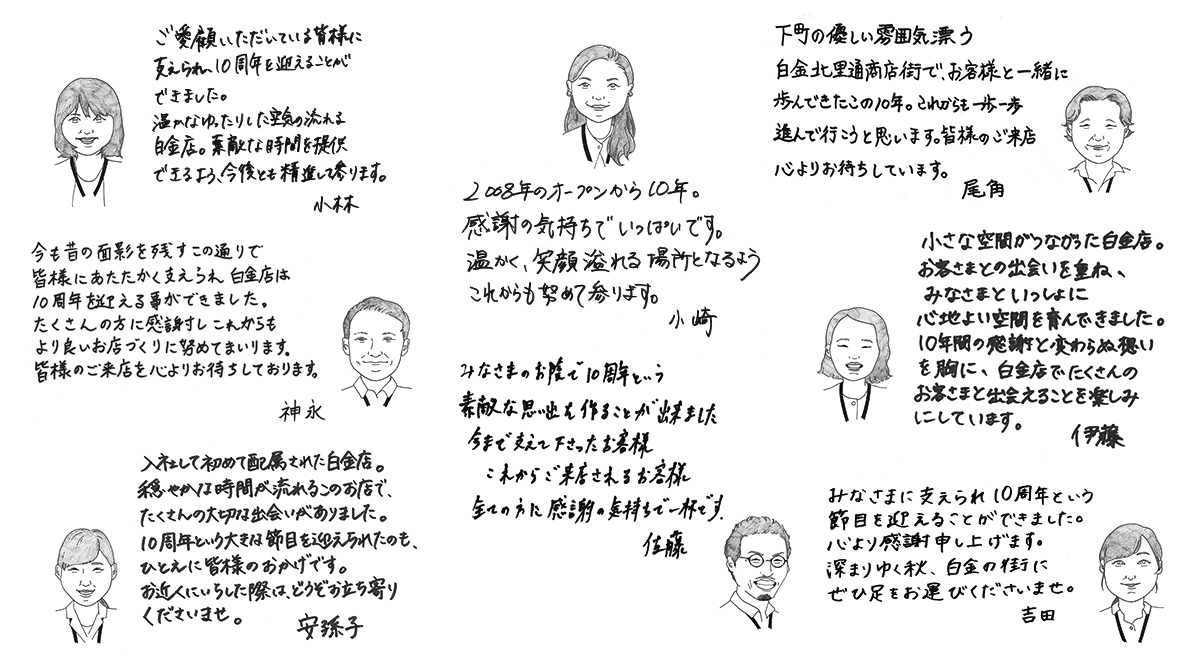 ご愛顧いただいている皆様に
支えられ、10周年を迎えることが
できました。
温かなゆったりした空気の流れる
白金店。素敵な時間を提供
できるよう、今後とも精進して参ります。
小林
今も昔の面影を残すこの通りで
皆様にあたたかく支えられ 白金店は
10周年を迎える事ができました。
たくさんの方に感謝し これからも
より良いお店づくりに努めてまいります。
皆様のご来店を心よりお待ちしております。
神永
入社して初めて配属された白金店。
穏やかな時間が流れるこのお店で、
たくさんの大切な出会いがありました。
10周年という大きな節目を迎えられたのも、
ひとえに皆様のおかげです。
お近くにいらした際は、どうぞお立ち寄り
くださいませ。
安孫子
2008年のオープンから10年。
感謝の気持ちでいっぱいです。
温かく、笑顔溢れる場所となるよう
これからも努めて参ります。
小崎
みなさまのお陰で10周年という
素敵な思い出を作ることが出来ました
今まで支えて下さったお客様
これからご来店されるお客様
全ての方に感謝の気持ちで一杯です.
佐藤
下町の優しい雰囲気漂う
白金北里通商店街で、お客様と一緒に
歩んできたこの10年。これからも一歩一歩
進んで行こうと思います。皆様のご来店
心よりお待ちしています。
尾角
小さな空間がつながった白金店。
お客さまとの出会いを重ね、
みなさまといっしょに
心地よい空間を育んできました。
10年間の感謝と変わらぬ想い
を胸に、白金店でたくさんの
お客さまと出会えることを楽しみ
にしています。
伊藤
みなさまに支えられ10周年という
節目を迎えることができました。
心より感謝申し上げます。
深まりゆく秋、白金の街に
ぜひ足をお運びくださいませ。
吉田